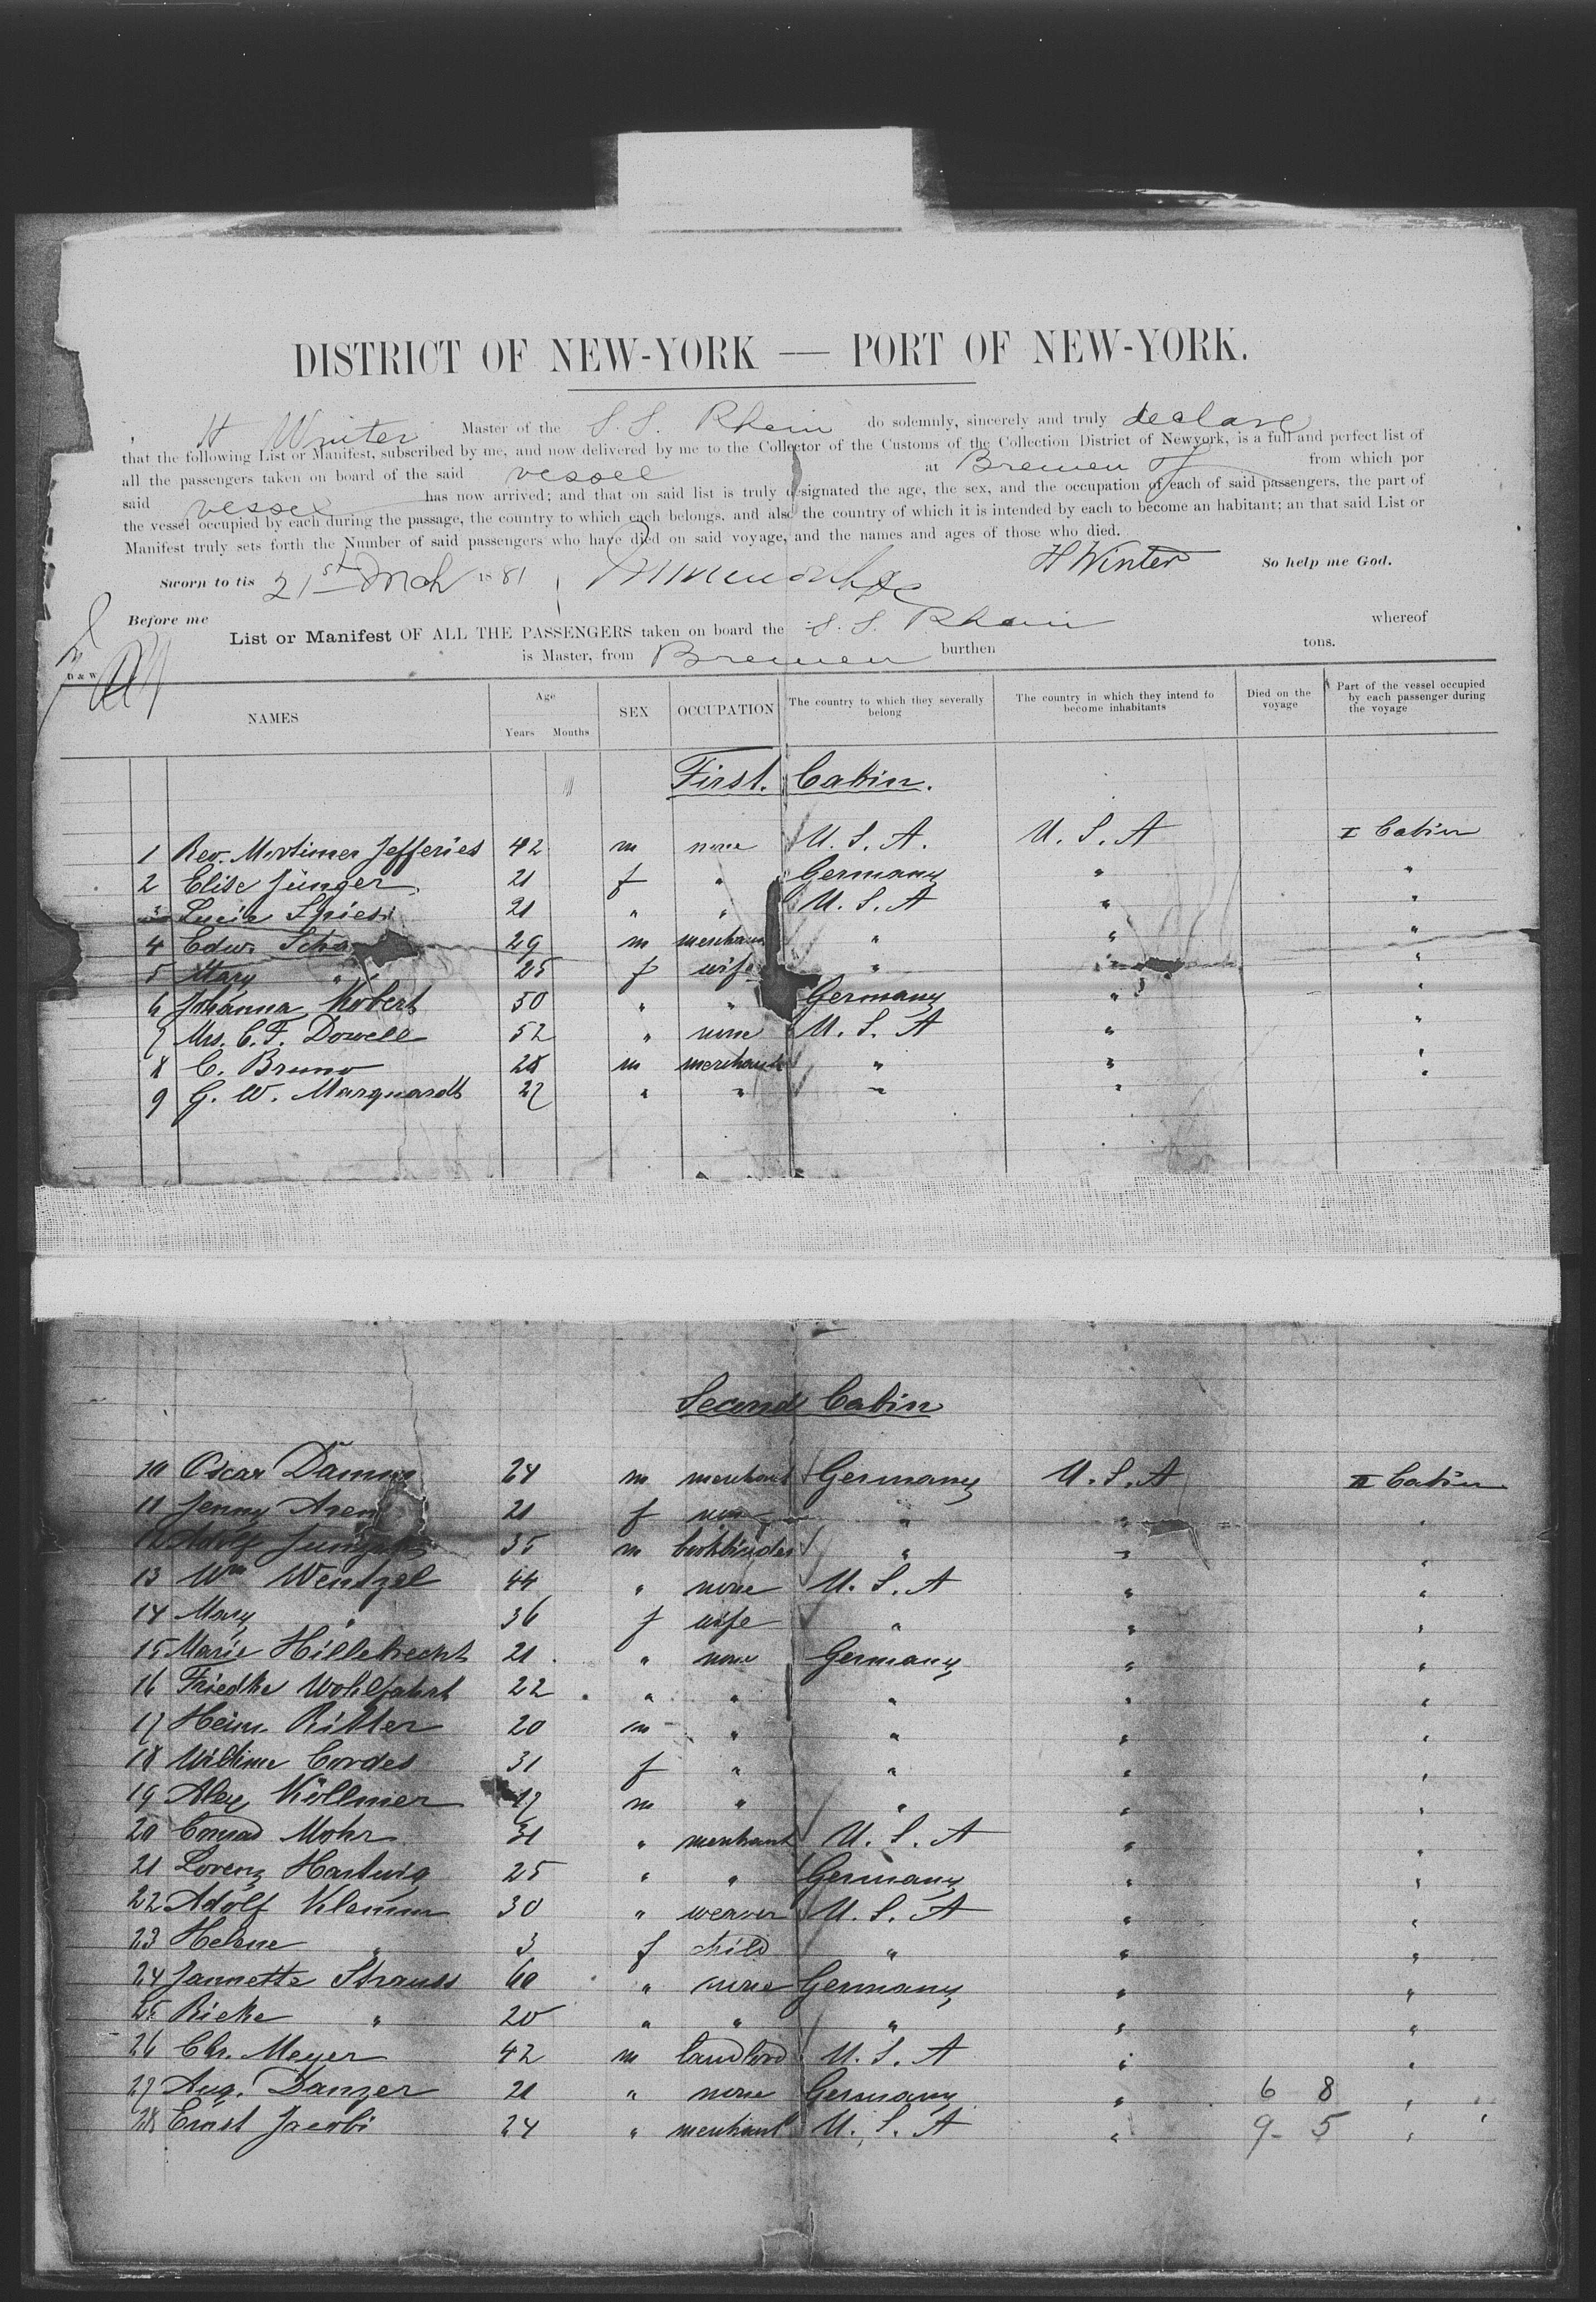 DISTRICT OF NEW-YORK — PORT OF NEW-YORK.
H Winter Master of the S. S. Rhein do solemnly, sincerely and truly declare
that the following List or Manifest, subscribed by me, and now delivered by me to the Collector of the Customs of the Collection District of Newyork, is a full and perfect list of
all the passengers taken on board of the said vessel at Bremen from which por
said vessel has now arrived; and that on said list is truly designated the age, the sex, and the occupation of each of said passengers, the part of
the vessel occupied by each during the passage, the country to which each belongs, and also the country of which it is intended by each to become an habitant; an that said List or
Manifest truly sets forth the Number of said passengers who have died on said voyage, and the names and ages of those who died.
Sworn to tis 21st Mch 1881 H Winter So help me God.
Before me
List or Manifest OF ALL THE PASSENGERS taken on board the S. S. Rhein whereof
is Master, from Bremen burthen tons.
D & W
NAMES Age Years Months SEX OCCUPATION The country to which they severally belong The country in which they intend fo become inhabitants Died on the voyage Part of the vessel occupied by each passenger during the voyage
First. Cabin.
1 Rev. Mortimer Jefferies 42 m none U. S. A. U. S. A I Cabin
2 Elise Jünger 21 f " Germany " "
3 Lucie Spies 21 " " U. S. A " "
4 Edw. Scha 29 m merchant " " "
5 Mary " 25 f wife " " "
6 Johanna Kobert 50 " " Germany " "
7 Mrs. C. F. Dowell 52 " none U. S. A " "
8 C. Bruno 28 m merchant " " "
9 G. W. Marquardt 27 " " " " "
Second Cabin
10 Oscar Damm 24 m merchant Germany U. S. A II Cabin
11 Jenny Aren 21 f none " " "
12 Adolf 35 m bookbinder " " "
13 Wm Wentzel 44 " none U. S. A " "
14 Mary " 36 f wife " " "
15 Marie Hillebrecht 21 " none Germany " "
16 Friedke Wohlfahrt 22 " " " " "
17 Heinr. Ritter 20 m " " " "
18 Wilhme Cordes 31 f " " " "
19 Alex Köllmer 17 m " " " "
20 Conrad Mohr 31 " merchant U. S. A " "
21 Lorenz Hartwig 25 " " Germany " "
22 Adolf Klemm 30 " weaver U. S. A " "
23 Helene " 3 f child " " "
24 Jannette Strauss 60 " none Germany " "
25 Rieke " 20 " " " " "
26 Chr. Meyer 42 m landlord U. S. A " "
27 Aug. Danzer 21 " none Germany " 6 8 "
28 Ernst Jacobi 24 " merchant U. S. A " 9- 5 "